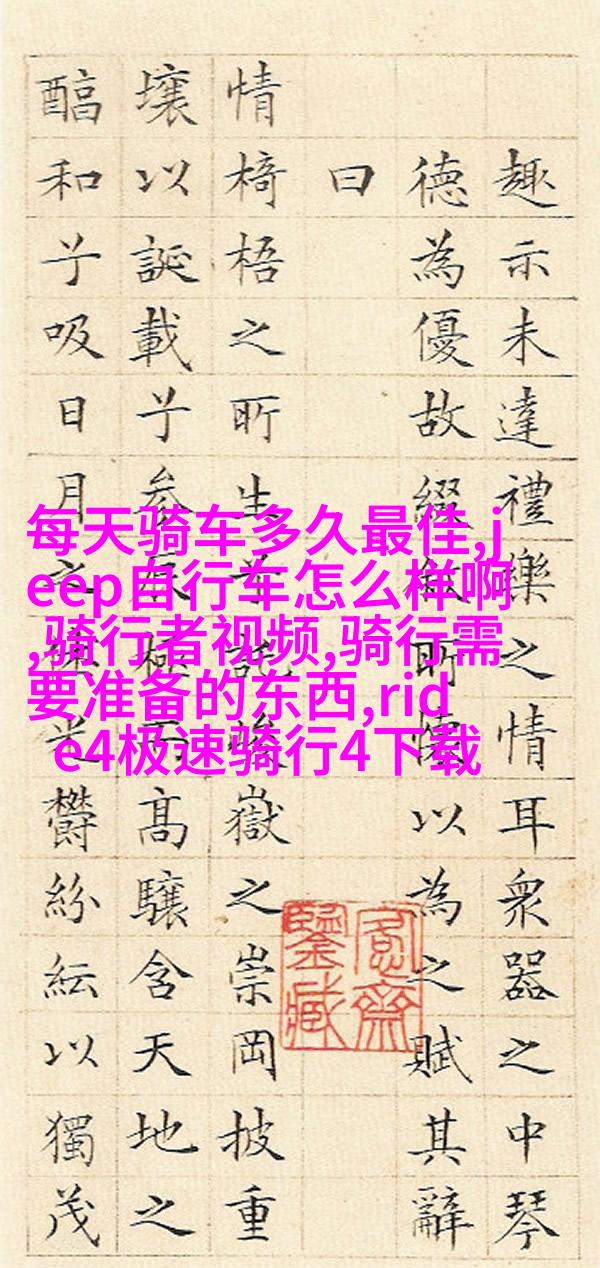 趣示未達禮樂之情耳衆器之中琴
德為優故綴敘所懷以為之賦其辭
曰
情椅梧之所生兮託峻嶽之崇岡披重
壤以誕載兮参辰極而高驤含天地之
醕和兮吸日月之光鬱紛紜以獨茂
每天骑车多久最佳,j
eep自行车怎么样啊
,骑行者视频,骑行需
要准备的东西,rid
e4极速骑行4下载
愙齋
鑒藏